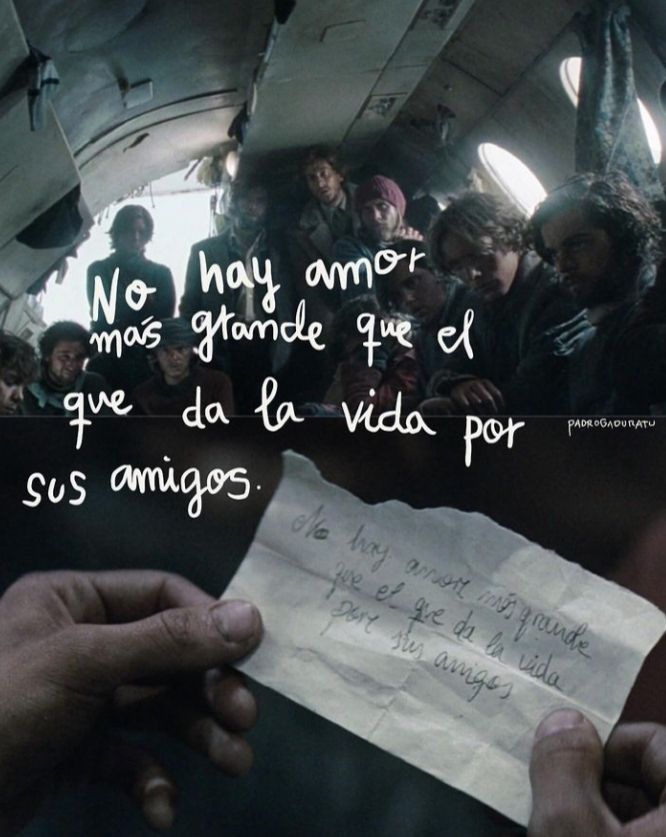 No hay amor
más grande que el
que da la vida por
sus amigos.
PADROGADURATU
No hay amor más grande
que el que da la vida
por sus amigos